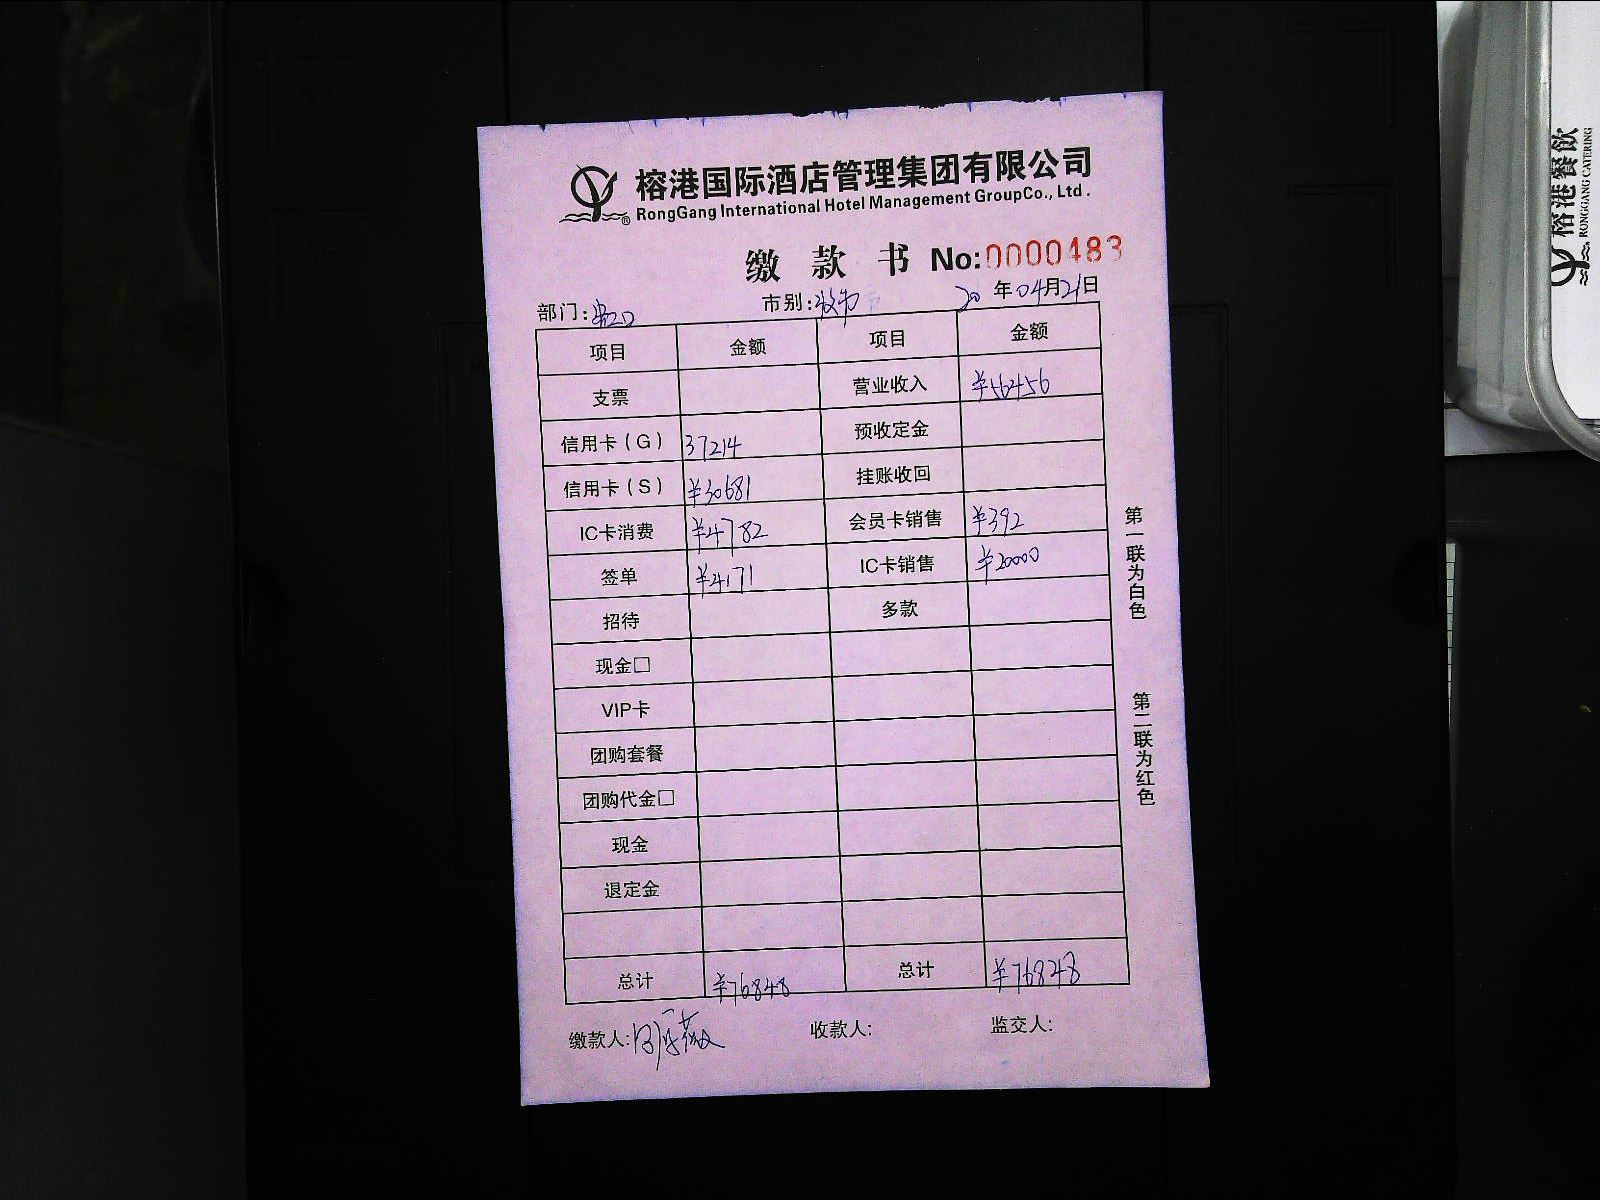 榕港国际酒店管理集团有限公司
RongGang International Hotel Management GroupCo., Ltd.
缴款书 No:0000483
部门: 市别: 20年04月21日
项目 金额 项目 金额
支票 营业收入 ¥56456
信用卡(G) 37214 预收定金
信用卡(S) ¥30681 挂账收回
IC卡消费 ¥4782 会员卡销售 ¥392
签单 ¥4171 IC卡销售 ¥20000
招待 多款
现金□
VIP卡
团购套餐
团购代金□
现金
退定金
总计 ¥76848 总计 ¥76848
缴款人: 收款人: 监交人:
第一联为白色
第二联为红色
榕港餐飲
RONGGANG CATERING